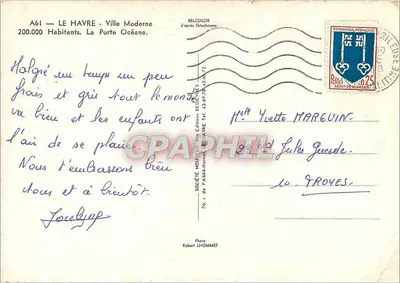 A61 — LE HAVRE - Ville Moderne
200.000 Habitants. La Porte Océane.
BELCOLOR
d'après Ektachrome
RÉPUBLIQUE FRANÇAISE
0,25
MONT-DE-MARSAN
Malgré un temps un peu
frais et gris tout le monde
va bien et les enfants ont
l'air de se plaire.
Nous t'embrassons bien
tous et à bientôt.
Jocelyne
CPAPHIL
Yvette MARGUIN
2 Bd Jules Guesde
10 TROYES
Photo
Robert LHOMMET